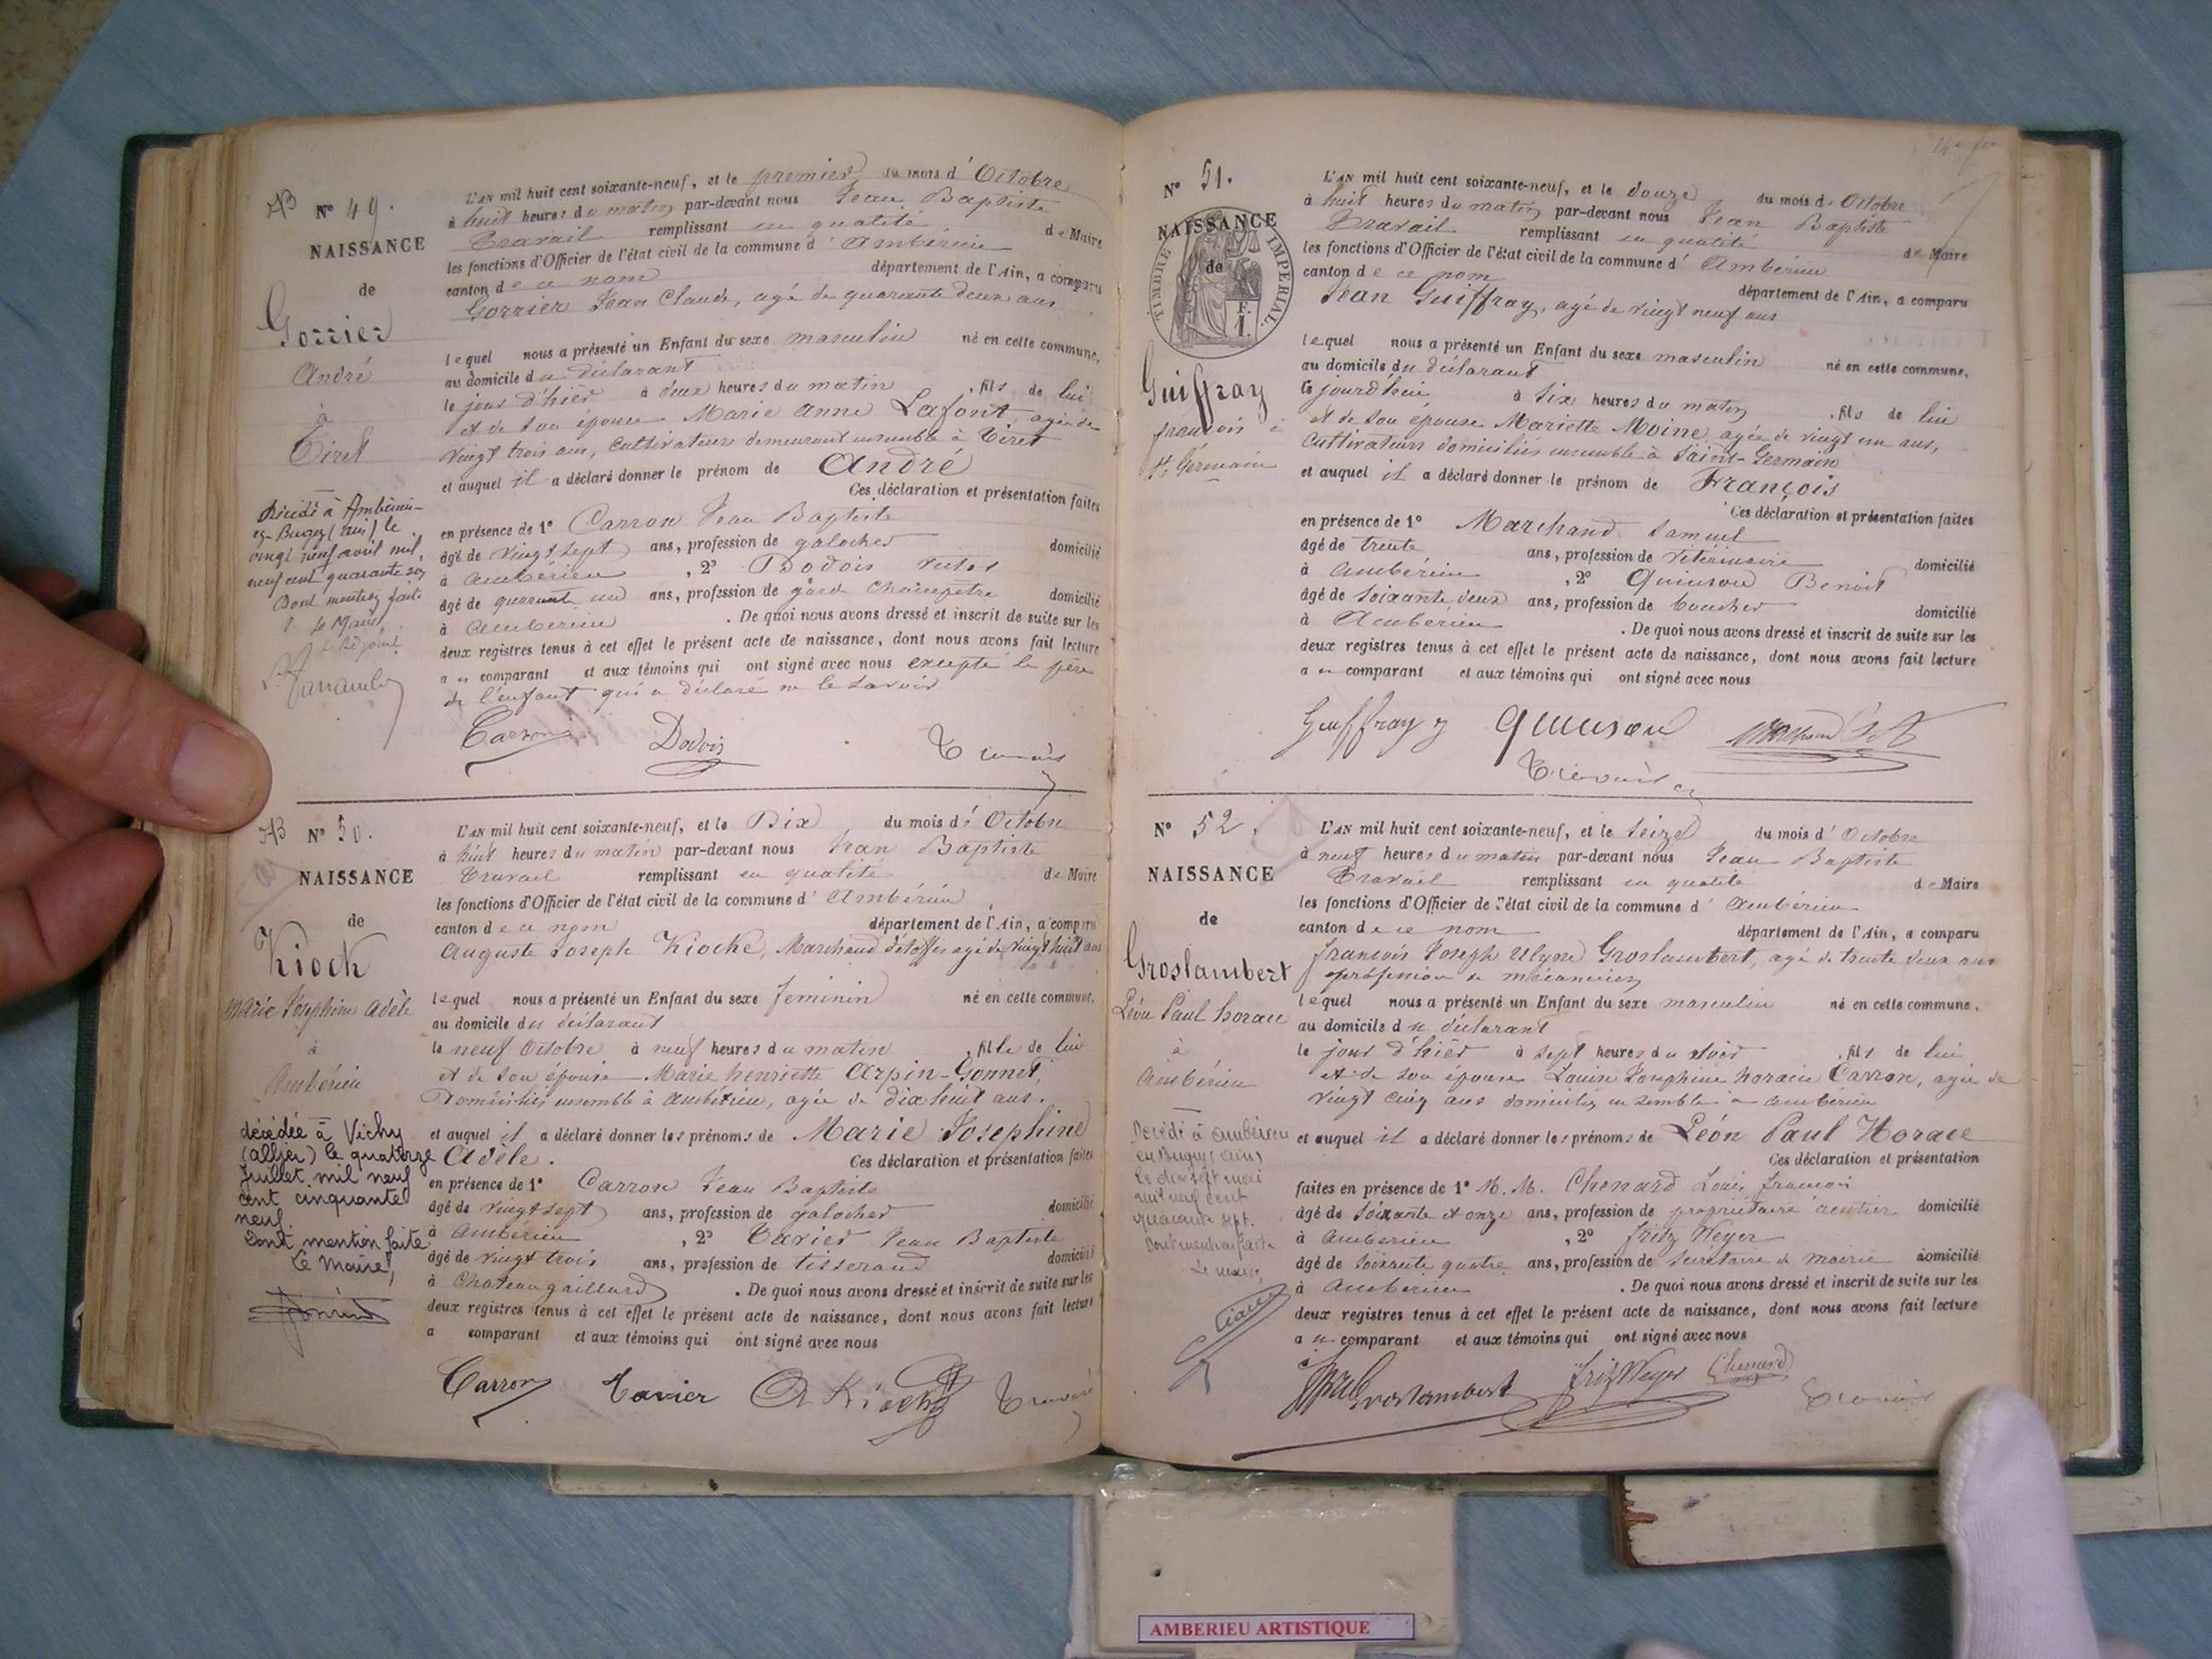 N° 49.
NAISSANCE
de
Gorrier
André
à
Tiret
Décédé à Ambérieu-
en-Bugey (Ain) le
vingt neuf août mil
neuf cent quarante
Dont mention faite
Le Maire
L'AN mil huit cent soixante-neuf, et le premier du mois d'Octobre
à huit heures du matin par-devant nous Jean Baptiste
Travail remplissant en qualité de Maire
les fonctions d'Officier de l'état civil de la commune d'Ambérieu
canton de ce nom département de l'Ain, a comparu
Gorrier Jean Claude, agé de quarante deux ans
lequel nous a présenté un Enfant du sexe masculin né en cette commune,
au domicile du déclarant
le jour d'hier à deux heures du matin , fils de lui
et de son épouse Marie Anne Lafont agée de
vingt trois ans, cultivateurs demeurant ensemble à Tiret
et auquel il a déclaré donner le prénom de André
Ces déclaration et présentation faites
en présence de 1° Carron Jean Baptiste
âgé de vingt sept ans, profession de galocher domicilié
à Ambérieu , 2° Dodois
âgé de quarante un ans, profession de garde champêtre domicilié
à Ambérieu . De quoi nous avons dressé et inscrit de suite sur les
deux registres tenus à cet effet le présent acte de naissance, dont nous avons fait lecture
au comparant et aux témoins qui ont signé avec nous excepté le père
de l'enfant qui a déclaré ne le savoir
Carron Dodois
N° 50.
NAISSANCE
de
Kioch
Marie Joséphine Adèle
à
Ambérieu
décédée à Vichy
(Allier) le quatorze
Juillet mil neuf
cent cinquante
neuf.
Dont mention faite
Le Maire,
L'AN mil huit cent soixante-neuf, et le Dix du mois d'Octobre
à huit heures du matin par-devant nous Jean Baptiste
Travail remplissant en qualité de Maire
les fonctions d'Officier de l'état civil de la commune d'Ambérieu
canton de ce nom département de l'Ain, a comparu
Auguste Joseph Kioche, Marchand d'étoffes agé de vingt huit ans
lequel nous a présenté un Enfant du sexe feminin né en cette commune,
au domicile du déclarant
le neuf Octobre à neuf heures du matin , fille de lui
et de son épouse Marie henriette Arpin-Gonnet,
Domiciliés ensemble à Ambérieu, agée de dix huit ans.
et auquel il a déclaré donner les prénoms de Marie Josephine
Adèle. Ces déclaration et présentation faites
en présence de 1° Carron Jean Baptiste
âgé de vingt sept ans, profession de galocher domicilié
à Ambérieu , 2° Tavier Jean Baptiste
âgé de vingt trois ans, profession de tisserand domicilié
à Chateau gaillard . De quoi nous avons dressé et inscrit de suite sur les
deux registres tenus à cet effet le présent acte de naissance, dont nous avons fait lecture
a comparant et aux témoins qui ont signé avec nous
Carron Tavier
N° 51.
NAISSANCE
de
TIMBRE IMPERIAL.
Guiffray
françois à
St Germain
L'AN mil huit cent soixante-neuf, et le douze du mois d'Octobre
à huit heures du matin par-devant nous Jean Baptiste
Travail remplissant en qualité de Maire
les fonctions d'Officier de l'état civil de la commune d'Ambérieu
canton de ce nom département de l'Ain, a comparu
Jean Guiffray, agé de vingt neuf ans
lequel nous a présenté un Enfant du sexe masculin né en cette commune,
au domicile du déclarant
le jourd'hui à six heures du matin , fils de lui
et de son épouse Mariette Moine, agée de vingt un ans,
Cultivateurs domiciliés ensemble à Saint-Germain
et auquel il a déclaré donner le prénom de François
Ces déclaration et présentation faites
en présence de 1° Marchand Samuel
âgé de trente ans, profession de vétérinaire domicilié
à Ambérieu , 2° Quinson Benoit
âgé de soixante deux ans, profession de boucher domicilié
à Ambérieu . De quoi nous avons dressé et inscrit de suite sur les
deux registres tenus à cet effet le présent acte de naissance, dont nous avons fait lecture
au comparant et aux témoins qui ont signé avec nous
Guiffray Quinson
N° 52.
NAISSANCE
de
Groslambert
Léon Paul horace
à
Ambérieu
Décédé à Ambérieu
en Bugey (Ain)
le dix sept mai
mil neuf cent
quarante sept.
Dont mention faite
Le maire,
L'AN mil huit cent soixante-neuf, et le seize du mois d'Octobre
à neuf heures du matin par-devant nous Jean Baptiste
Travail remplissant en qualité de Maire
les fonctions d'Officier de l'état civil de la commune d'Ambérieu
canton de ce nom département de l'Ain, a comparu
françois Joseph Ulysse Groslambert, agé de trente deux ans
profession de mécanicien
lequel nous a présenté un Enfant du sexe masculin né en cette commune,
au domicile du déclarant
le jour d'hier à sept heures du soir , fils de lui
et de son épouse Louise Josephine horacie Carron, agée de
vingt cinq ans domiciliés ensemble à Ambérieu
et auquel il a déclaré donner les prénoms de Léon Paul Horace
Ces déclaration et présentation
faites en présence de 1° M. M. Chenard Louis françois
âgé de soixante et onze ans, profession de propriétaire rentier domicilié
à Ambérieu , 2° Fritz Weyer
âgé de soixante quatre ans, profession de secrétaire de mairie domicilié
à Ambérieu . De quoi nous avons dressé et inscrit de suite sur les
deux registres tenus à cet effet le présent acte de naissance, dont nous avons fait lecture
au comparant et aux témoins qui ont signé avec nous
Groslambert Fritz Weyer Chenard
AMBERIEU ARTISTIQUE